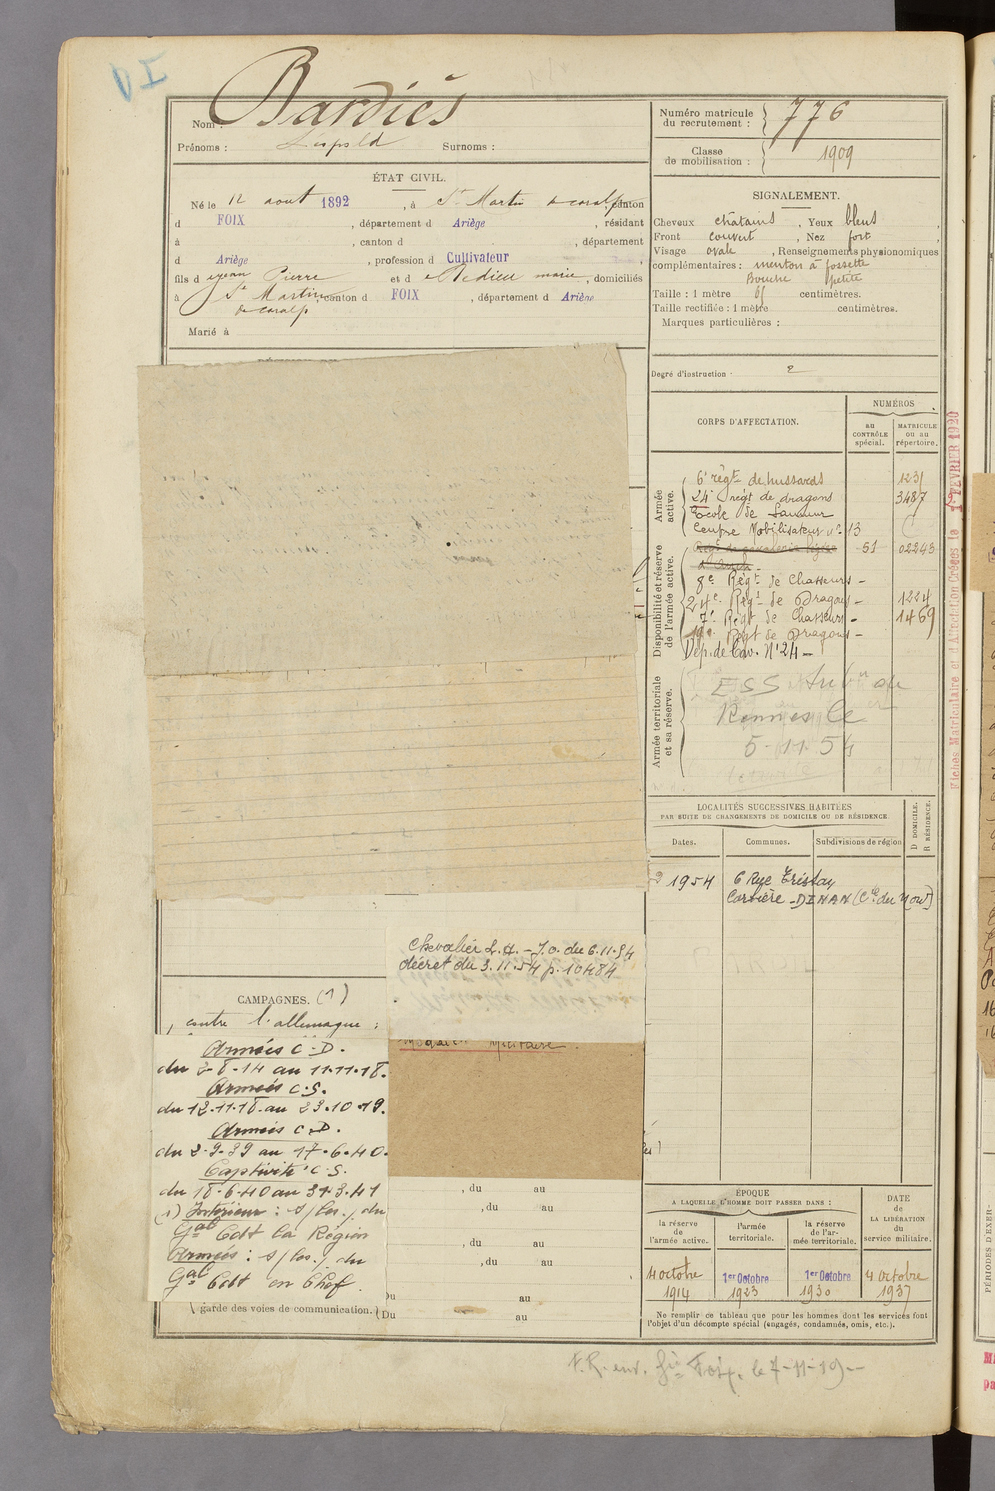 Nom : Bardiès
Prénoms : Léopold Surnoms :
ÉTAT CIVIL.
Né le 12 aout 1892, à St Martin de caralp, canton
d FOIX, département d Ariège, résidant
à , canton d , département
d Ariège, profession d Cultivateur
fils d e Jean Pierre et d e Dedieu marie, domiciliés
à St Martin de caralp, canton d FOIX, département d Ariège
Marié à
Numéro matricule du recrutement : 776
Classe de mobilisation : 1909
SIGNALEMENT.
Cheveux châtains, Yeux bleus,
Front couvert, Nez fort,
Visage ovale, Renseignements physionomiques
complémentaires : menton à fossette
Bouche petite
Taille : 1 mètre 61 centimètres.
Taille rectifiée : 1 mètre centimètres.
Marques particulières :
Degré d'instruction 2
CORPS D'AFFECTATION.
NUMÉROS
au CONTRÔLE spécial.
MATRICULE ou au répertoire.
Armée active.
6e régt de hussards 1231
24e régt de dragons 3487
Ecole de Saumur
Centre Mobilisateur no 13
Disponibilité et réserve de l'armée active.
51 02243
8e Régt de Chasseurs -
24e Régt de Dragons - 1224
7e Régt de Chasseurs - 1469
19e Régt de Dragons -
Dép. de Cav. N° 24 -
Armée territoriale et sa réserve.
ESS Subon de
Rennes le
5-11-54
Fiches Matriculaire et d'Affectation Créées le FÉVRIER 1920
LOCALITÉS SUCCESSIVES HABITÉES
PAR SUITE DE CHANGEMENTS DE DOMICILE OU DE RÉSIDENCE
Dates. Communes. Subdivisions de région
D DOMICILE.
R RÉSIDENCE.
1954 6 Rue Tristan
Corbière - DINAN (Cte du Nord)
Chevalier L.H. - J.O. du 6.11.54
décret du 3.11.54 p. 10484
Militaire.
CAMPAGNES. (1)
, contre l'allemagne :
Armées C.D.
du 2-8-14 au 11.11.18.
Armées C.S.
du 12.11.18 au 23.10.19.
Armées C.D.
du 2.9.39 au 17.6.40.
Captivité C.S.
du 18.6.40 au 31.3.41
(1) Intérieur : s/les./ du
Gal Cdt la Région
Armées : s/les./ du
Gal Cdt en Chef.
garde des voies de communication.
, du au
, du au
, du au
, du au
Du au
Du au
ÉPOQUE
A LAQUELLE L'HOMME DOIT PASSER DANS :
DATE DE LA LIBÉRATION du service militaire.
la réserve de l'armée active.
l'armée territoriale.
la réserve de l'armée territoriale.
4 octobre 1914
1er Octobre 1923
1er Octobre 1930
4 octobre 1937
Ne remplir ce tableau que pour les hommes dont les services font
l'objet d'un décompte spécial (engagés, condamnés, omis, etc.).
PÉRIODES D'EXER-